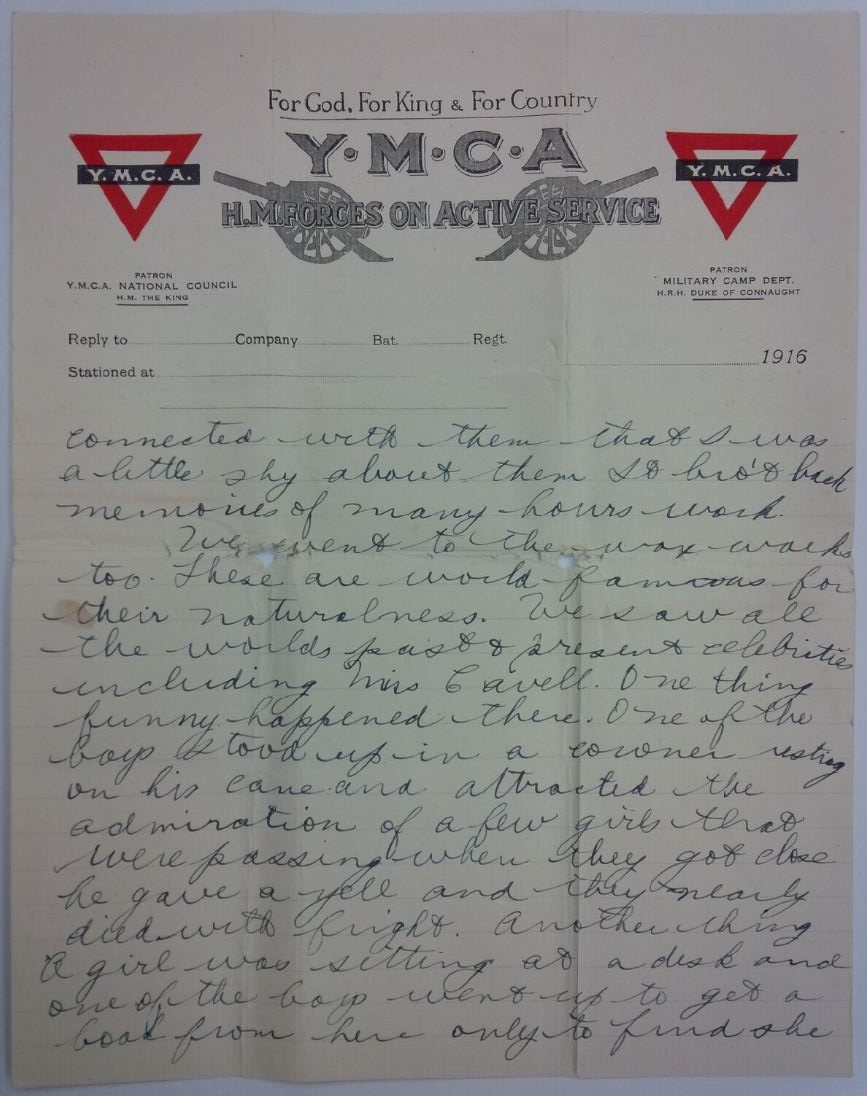 For God, For King & For Country
Y·M·C·A
Y.M.C.A.
Y.M.C.A.
H.M. FORCES ON ACTIVE SERVICE
PATRON
Y.M.C.A. NATIONAL COUNCIL
H.M. THE KING
PATRON
MILITARY CAMP DEPT.
H.R.H. DUKE OF CONNAUGHT
Reply to Company Bat. Regt.
1916
Stationed at
connected with them that I was
a little shy about them It bro't back
memories of many hours work.
We went to the wax-works
too. These are world-famous for
their naturalness. We saw all
the worlds past & present celebrities
including Miss Cavell. One thing
funny happened there. One of the
boys stood up in a corner resting
on his cane and attracted the
admiration of a few girls that
were passing when they got close
he gave a yell and they nearly
died with fright. Another thing
A girl was setting at a desk and
one of the boys went up to get a
book from here only to find she